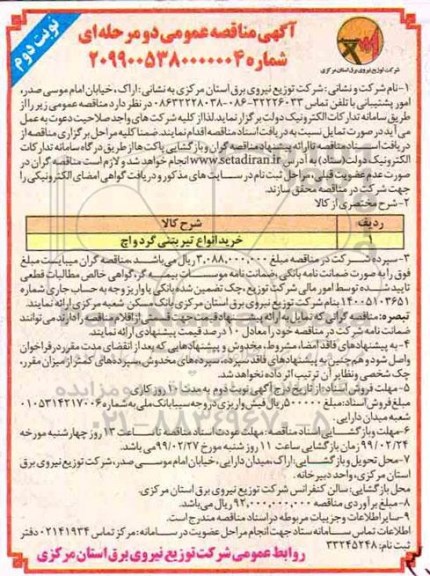 نوبت دوم
آگهی مناقصه عمومی دو مرحله ای
شماره ۲۰۹۹۰۰۵۳۸۰۰۰۰۰۰۴
شرکت توزیع نیروی برق استان مرکزی
۱-نام شرکت و نشانی : شرکت توزیع نیروی برق استان مرکزی به نشانی : اراک ، خیابان امام موسی صدر،
امور پشتیبانی با تلفن تماس ۳۲۲۲۶۰۳۳-۰۸۶-۰۸۶۳۲۲۲۸۰۳۸ در نظر دارد مناقصه عمومی زیر را از
طریق سامانه تدارکات الکترونیک دولت برگزار نماید. لذا از کلیه شرکت های واجد صلاحیت دعوت به عمل
می آید در صورت تمایل نسبت به دریافت اسناد مناقصه اقدام نمایند. ضمنا کلیه مراحل برگزاری مناقصه از
دریافت اسناد مناقصه تا ارائه پیشنهاد مناقصه گران و بازگشایی پاکت ها از طریق درگاه سامانه تدارکات
الکترونیک دولت (ستاد) به آدرس www.setadiran.ir انجام خواهد شد و لازم است مناقصه گران در
صورت عدم عضویت قبلی، مراحل ثبت نام در سایت های مذکور و دریافت گواهی امضای الکترونیکی را
جهت شرکت در مناقصه محقق سازند.
۲-شرح مختصری از کالا
ردیف شرح کالا
خرید انواع تیر بتنی گرد و اچ
۳-سپرده شرکت در مناقصه مبلغ ۳.۰۸۸.۰۰۰.۰۰۰ ریال می باشد. مناقصه گران میبایست مبلغ
فوق را به صورت ضمانت نامه بانکی، ضمانت نامه موسسات بیمه گر، گواهی خالص مطالبات قطعی
تایید شده توسط امور مالی شرکت توزیع، چک تضمین شده بانکی یا واریز وجه به حساب جاری شماره
۱۴۰۰۵۱۰۳۶۵۱ بنام شرکت توزیع نیروی برق استان مرکزی بانک مسکن شعبه مرکزی ارائه نمایند.
تبصره: مناقصه گرانی که تمایل به ارائه پیشنهاد قیمت جهت قسمتی از اقلام مناقصه را دارند می توانند
ضمانت نامه شرکت در مناقصه خود را معادل ۱۰ درصد قیمت پیشنهادی ارائه نمایند.
۴-به پیشنهادهای فاقد امضاء، مشروط، مخدوش و پیشنهادهایی که بعد از انقضای مدت مقرر در فراخوان
واصل شود و هم چنین به پیشنهادهای فاقد سپرده، سپرده های مخدوش، سپرده های کمتر از میزان مقرر،
چک شخصی و نظایر آن ترتیب اثر داده نخواهد شد.
۵-مهلت فروش اسناد: از تاریخ درج آگهی نوبت دوم به مدت ۱۰ روز کاری
مبلغ فروش اسناد: مبلغ ۵۰۰.۰۰۰ ریال فیش واریزی در وجه سیبا بانک ملی به شماره ۰۱۰۵۳۱۴۲۱۷۰۰۶
شعبه میدان دارایی.
۶-مهلت و بازگشایی اسناد مناقصه: مهلت عودت اسناد مناقصه تا ساعت ۱۳ روز چهارشنبه مورخه
۹۹/۰۲/۲۴ زمان بازگشایی ساعت ۱۱ روز شنبه مورخ ۹۹/۰۲/۲۷ می باشد.
۷-محل تحویل و بازگشایی: اراک، میدان دارایی، خیابان امام موسی صدر، شرکت توزیع نیروی برق
استان مرکزی، واحد دبیرخانه.
محل بازگشایی: سالن کنفرانس شرکت توزیع نیروی برق استان مرکزی.
۸-مبلغ برآوردی مناقصه ۹۲,۰۰۰,۰۰۰,۰۰۰ ریال می باشد.
۹-سایر اطلاعات و جزییات مربوطه در اسناد مناقصه مندرج است.
اطلاعات تماس سامانه ستاد جهت انجام مراحل عضویت در سامانه: مرکز تماس ۰۲۱۴۱۹۳۴ دفتر
ثبت نام: ۳۳۲۴۵۲۴۸
روابط عمومی شرکت توزیع نیروی برق استان مرکزی